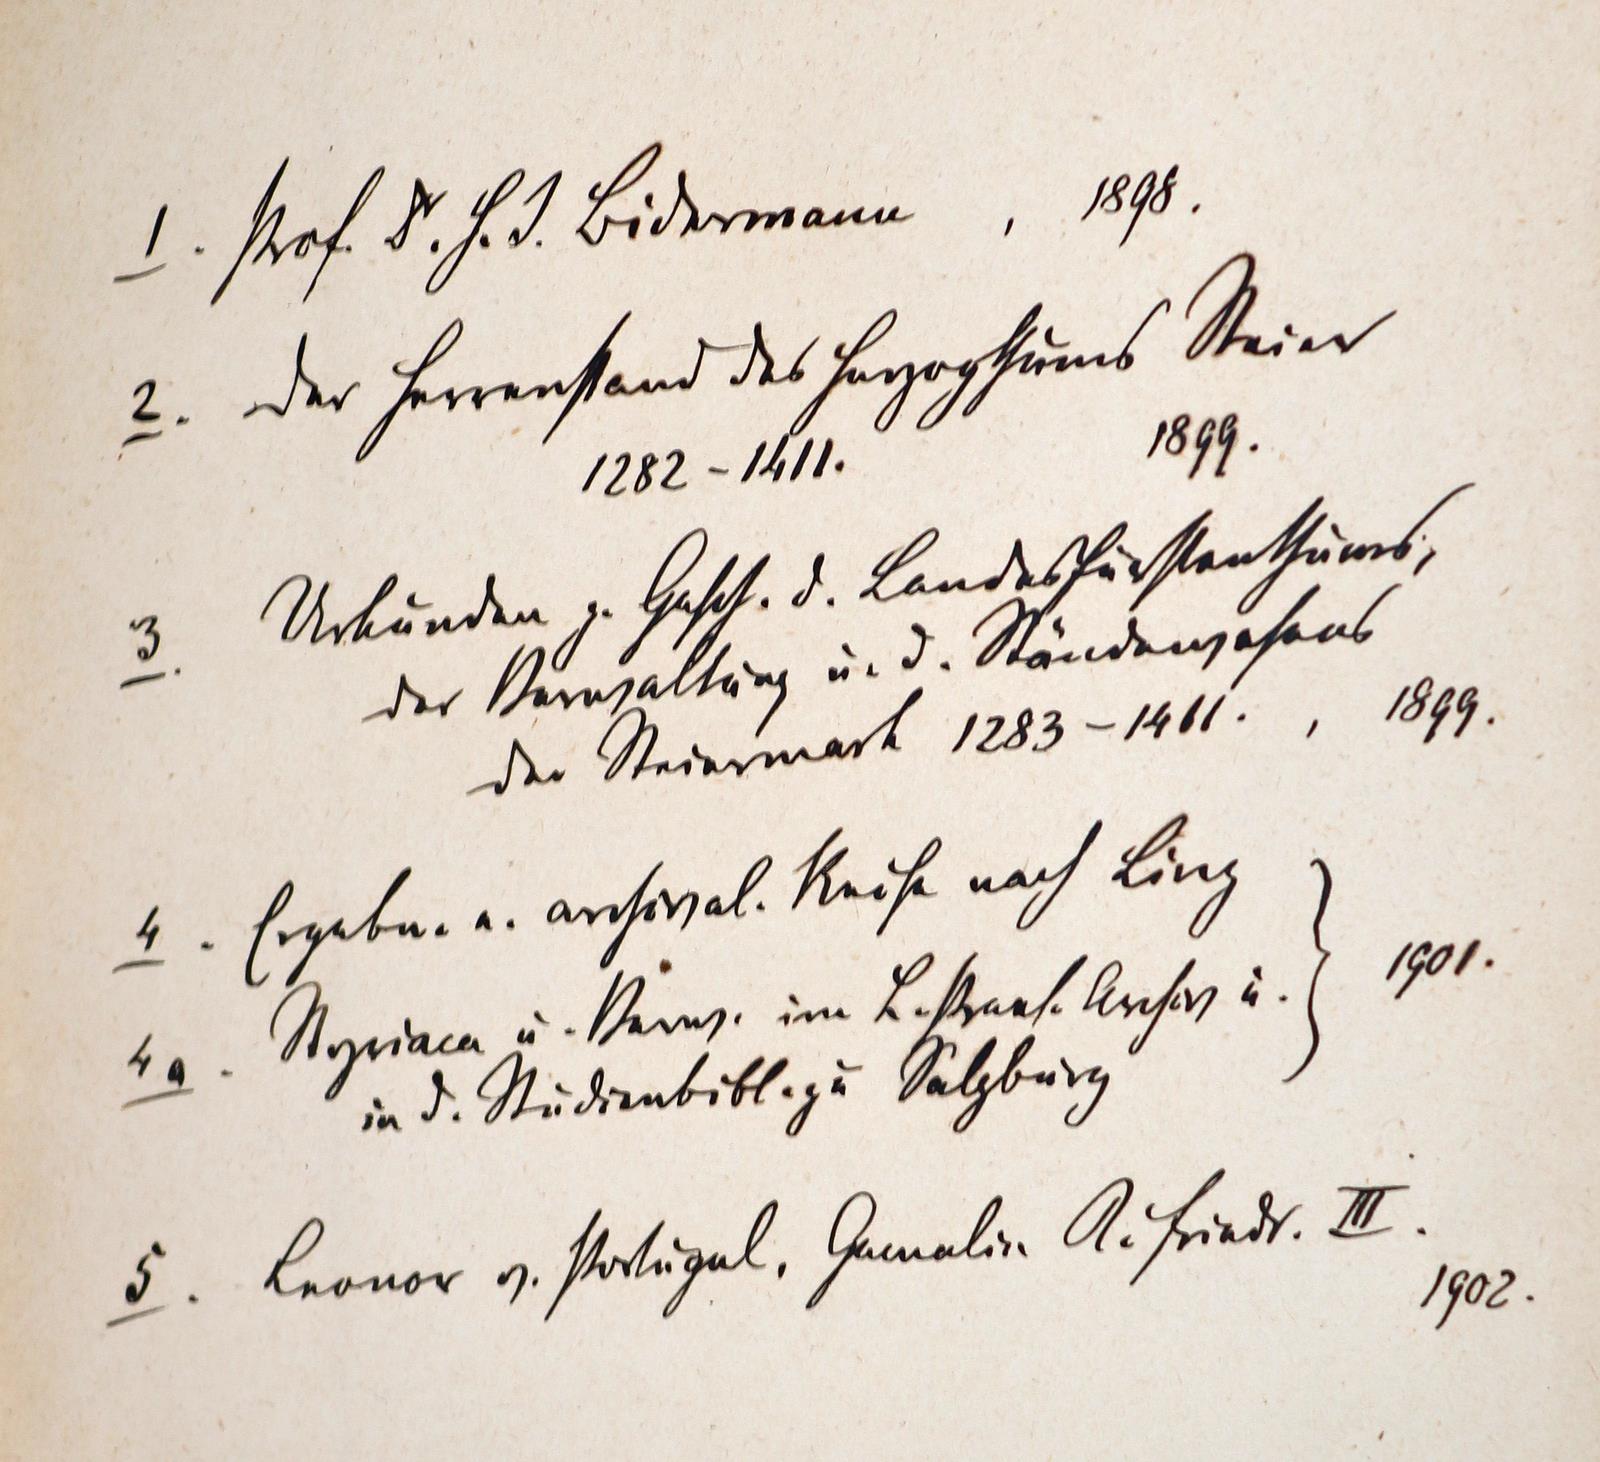 1. Prof. Dr. H. I. Bidermann, 1898.
2. Der Herrenstand des Herzogthums Steier
1282-1411. 1899.
3. Urkunden z. Gesch. d. Landesfürstenthums,
der Verwaltung u. d. Ständewesens
der Steiermark 1283-1411., 1899.
4. Ergebn. e. archival. Reise nach Linz
4a. Styriaca u. Verw. im k. k. Archiv u. 1901.
in d. Studienbibl. zu Salzburg
5. Leonor v. Portugal, Gemalin K. Friedr. III.
1902.